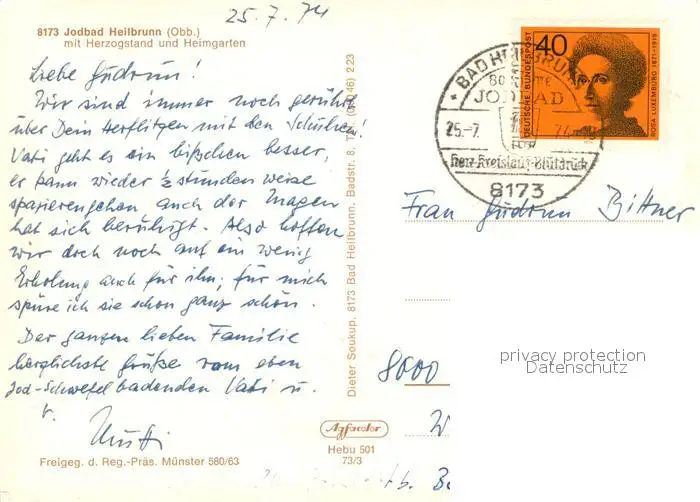 25.7.74
8173 Jodbad Heilbrunn (Obb.)
mit Herzogstand und Heimgarten
Liebe Gudrun!
Wir sind immer noch gerührt
über Dein Herflitzen mit den Schuhen!
Vati geht es ein bißchen besser,
er kann wieder ½ stunden weise
spazierengehen auch der Magen
hat sich beruhigt. Also hoffen
wir doch noch auf ein wenig
Erholung auch für ihn, für mich
spüre ich sie schon ganz schön.
Der ganzen lieben Familie
herzlichste Grüße vom eben
Jod-Schwefel badenden Vati u.
v.
Mutti
Freigeg. d. Reg.-Präs. Münster 580/63
Dieter Soukup, 8173 Bad Heilbrunn, Badstr. 8, Tel. (080 46) 2 23
Agfacolor
Hebu 501
73/3
BAD HEILBRUNN
JODBAD
25.-7. 74
Herz-Kreislauf-Blutdruck
8173
40
DEUTSCHE BUNDESPOST
ROSA LUXEMBURG 1871-1919
Frau Gudrun Bittner
8000
privacy protection
Datenschutz